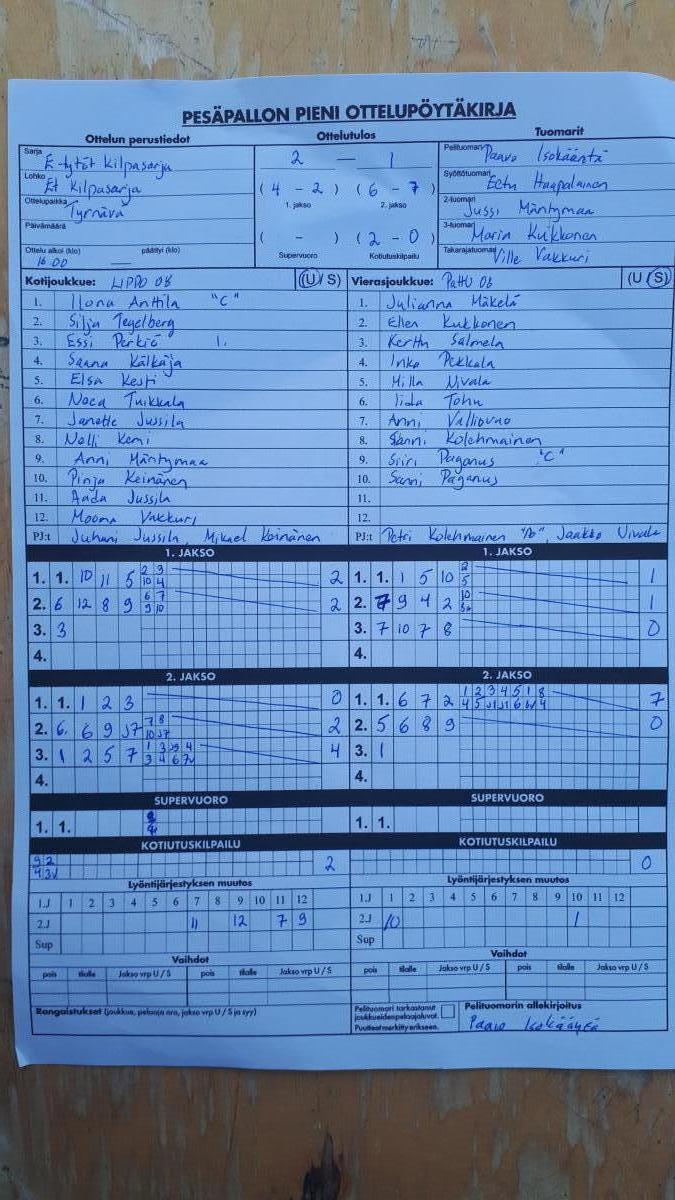 PESÄPALLON PIENI OTTELUPÖYTÄKIRJA
Ottelun perustiedot
Ottelutulos
Tuomarit
Sarja E-tytöt Kilpasarja
Lohko Et Kilpasarja
Ottelupaikka Tyrnävä
Päivämäärä
Ottelu alkoi (klo) päättyi (klo)
16 00 —
2 — 1
( 4 - 2 ) ( 6 - 7 )
1. jakso 2. jakso
( - ) ( 2 - 0 )
Supervuoro Kotiutuskilpailu
Pelituomari Paavo Isokääntä
Syöttötuomari Eetu Haapalainen
2-tuomari Jussi Mäntymaa
3-tuomari Maria Kukkonen
Takarajatuomari Ville Vakkuri
Kotijoukkue: LIPPO 08 (U / S)
1. Ilona Anttila "C"
2. Silja Tegelberg
3. Essi Perkiö 1.
4. Saana Kälkäjä
5. Elsa Kesti
6. Neea Tuikkala
7. Janette Jussila
8. Nelli Kemi
9. Anni Mäntymaa
10. Pinja Keinänen
11. Aada Jussila
12. Moona Vakkuri
PJ:t Juhani Jussila, Mikael Keinänen
Vierasjoukkue: PattU 08 (U / S)
1. Julianna Mäkelä
2. Ellen Kukkonen
3. Kerttu Salmela
4. Inka Pekkala
5. Milla Nivala
6. Iida Tohu
7. Anni
8. Sanni Kolehmainen
9. Siiri Paganus "C"
10. Sanni Paganus
11.
12.
PJ:t Petri Kolehmainen Jaakko Nivala
1. JAKSO
1. 1. 10 11 5 2 3 2
10 4
2. 6 12 8 9 6 7 2
9 10
3. 3
4.
1. JAKSO
1. 1. 1 5 10 2 1
5
2. 7 9 4 2 10 1
3. 7 10 7 8 0
4.
2. JAKSO
1. 1. 1 2 3 0
2. 6. 6 9 J7 7 8 2
10 J7
3. 1 2 5 7 1 3 J9 4 4
3 4 6 7v
4.
2. JAKSO
1. 1. 6 7 2 1 2 3 4 5 1 8 7
4 5 J1 J1 6
2. 5 6 8 9 0
3. 1
4.
SUPERVUORO
1. 1.
SUPERVUORO
1. 1.
KOTIUTUSKILPAILU
9 2 2
4 3v
KOTIUTUSKILPAILU
0
Lyöntijärjestyksen muutos
1.J 1 2 3 4 5 6 7 8 9 10 11 12
2.J 11 12 7 9
Sup
Lyöntijärjestyksen muutos
1.J 1 2 3 4 5 6 7 8 9 10 11 12
2.J 10 1
Sup
Vaihdot
pois tilalle Jakso vrp U / S pois tilalle Jakso vrp U / S
Vaihdot
pois tilalle Jakso vrp U / S pois tilalle Jakso vrp U / S
Rangaistukset (joukkue, pelaaja nro, jakso vrp U / S ja syy)
Pelituomari tarkastanut
joukkueiden pelaajaluvat.
Puutteet merkitty erikseen.
Pelituomarin allekirjoitus
Paavo Isokääntä